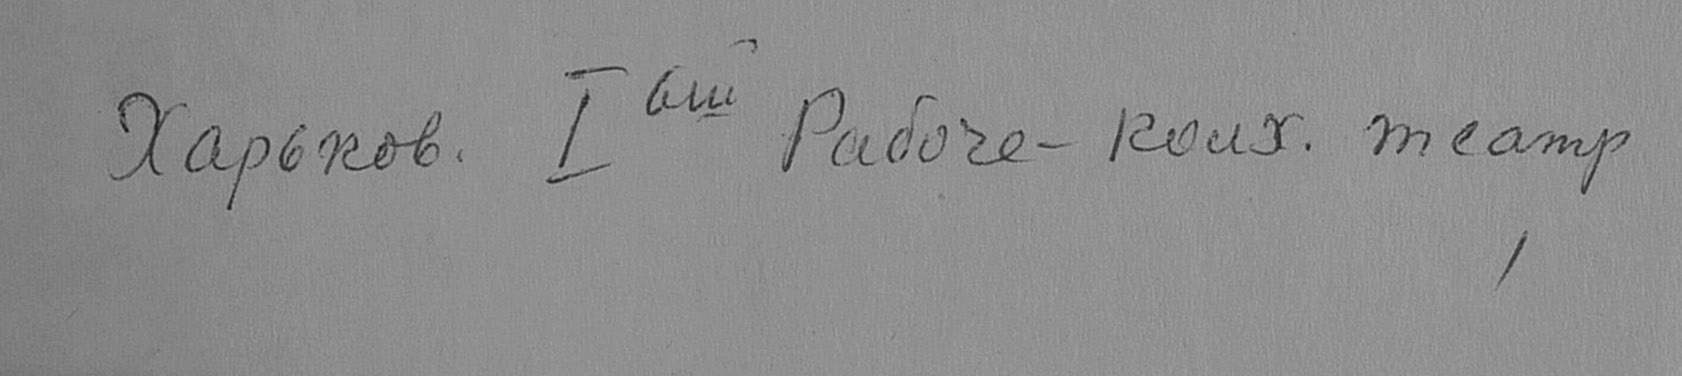 Харьков. I ый Рабоче-колх. театр